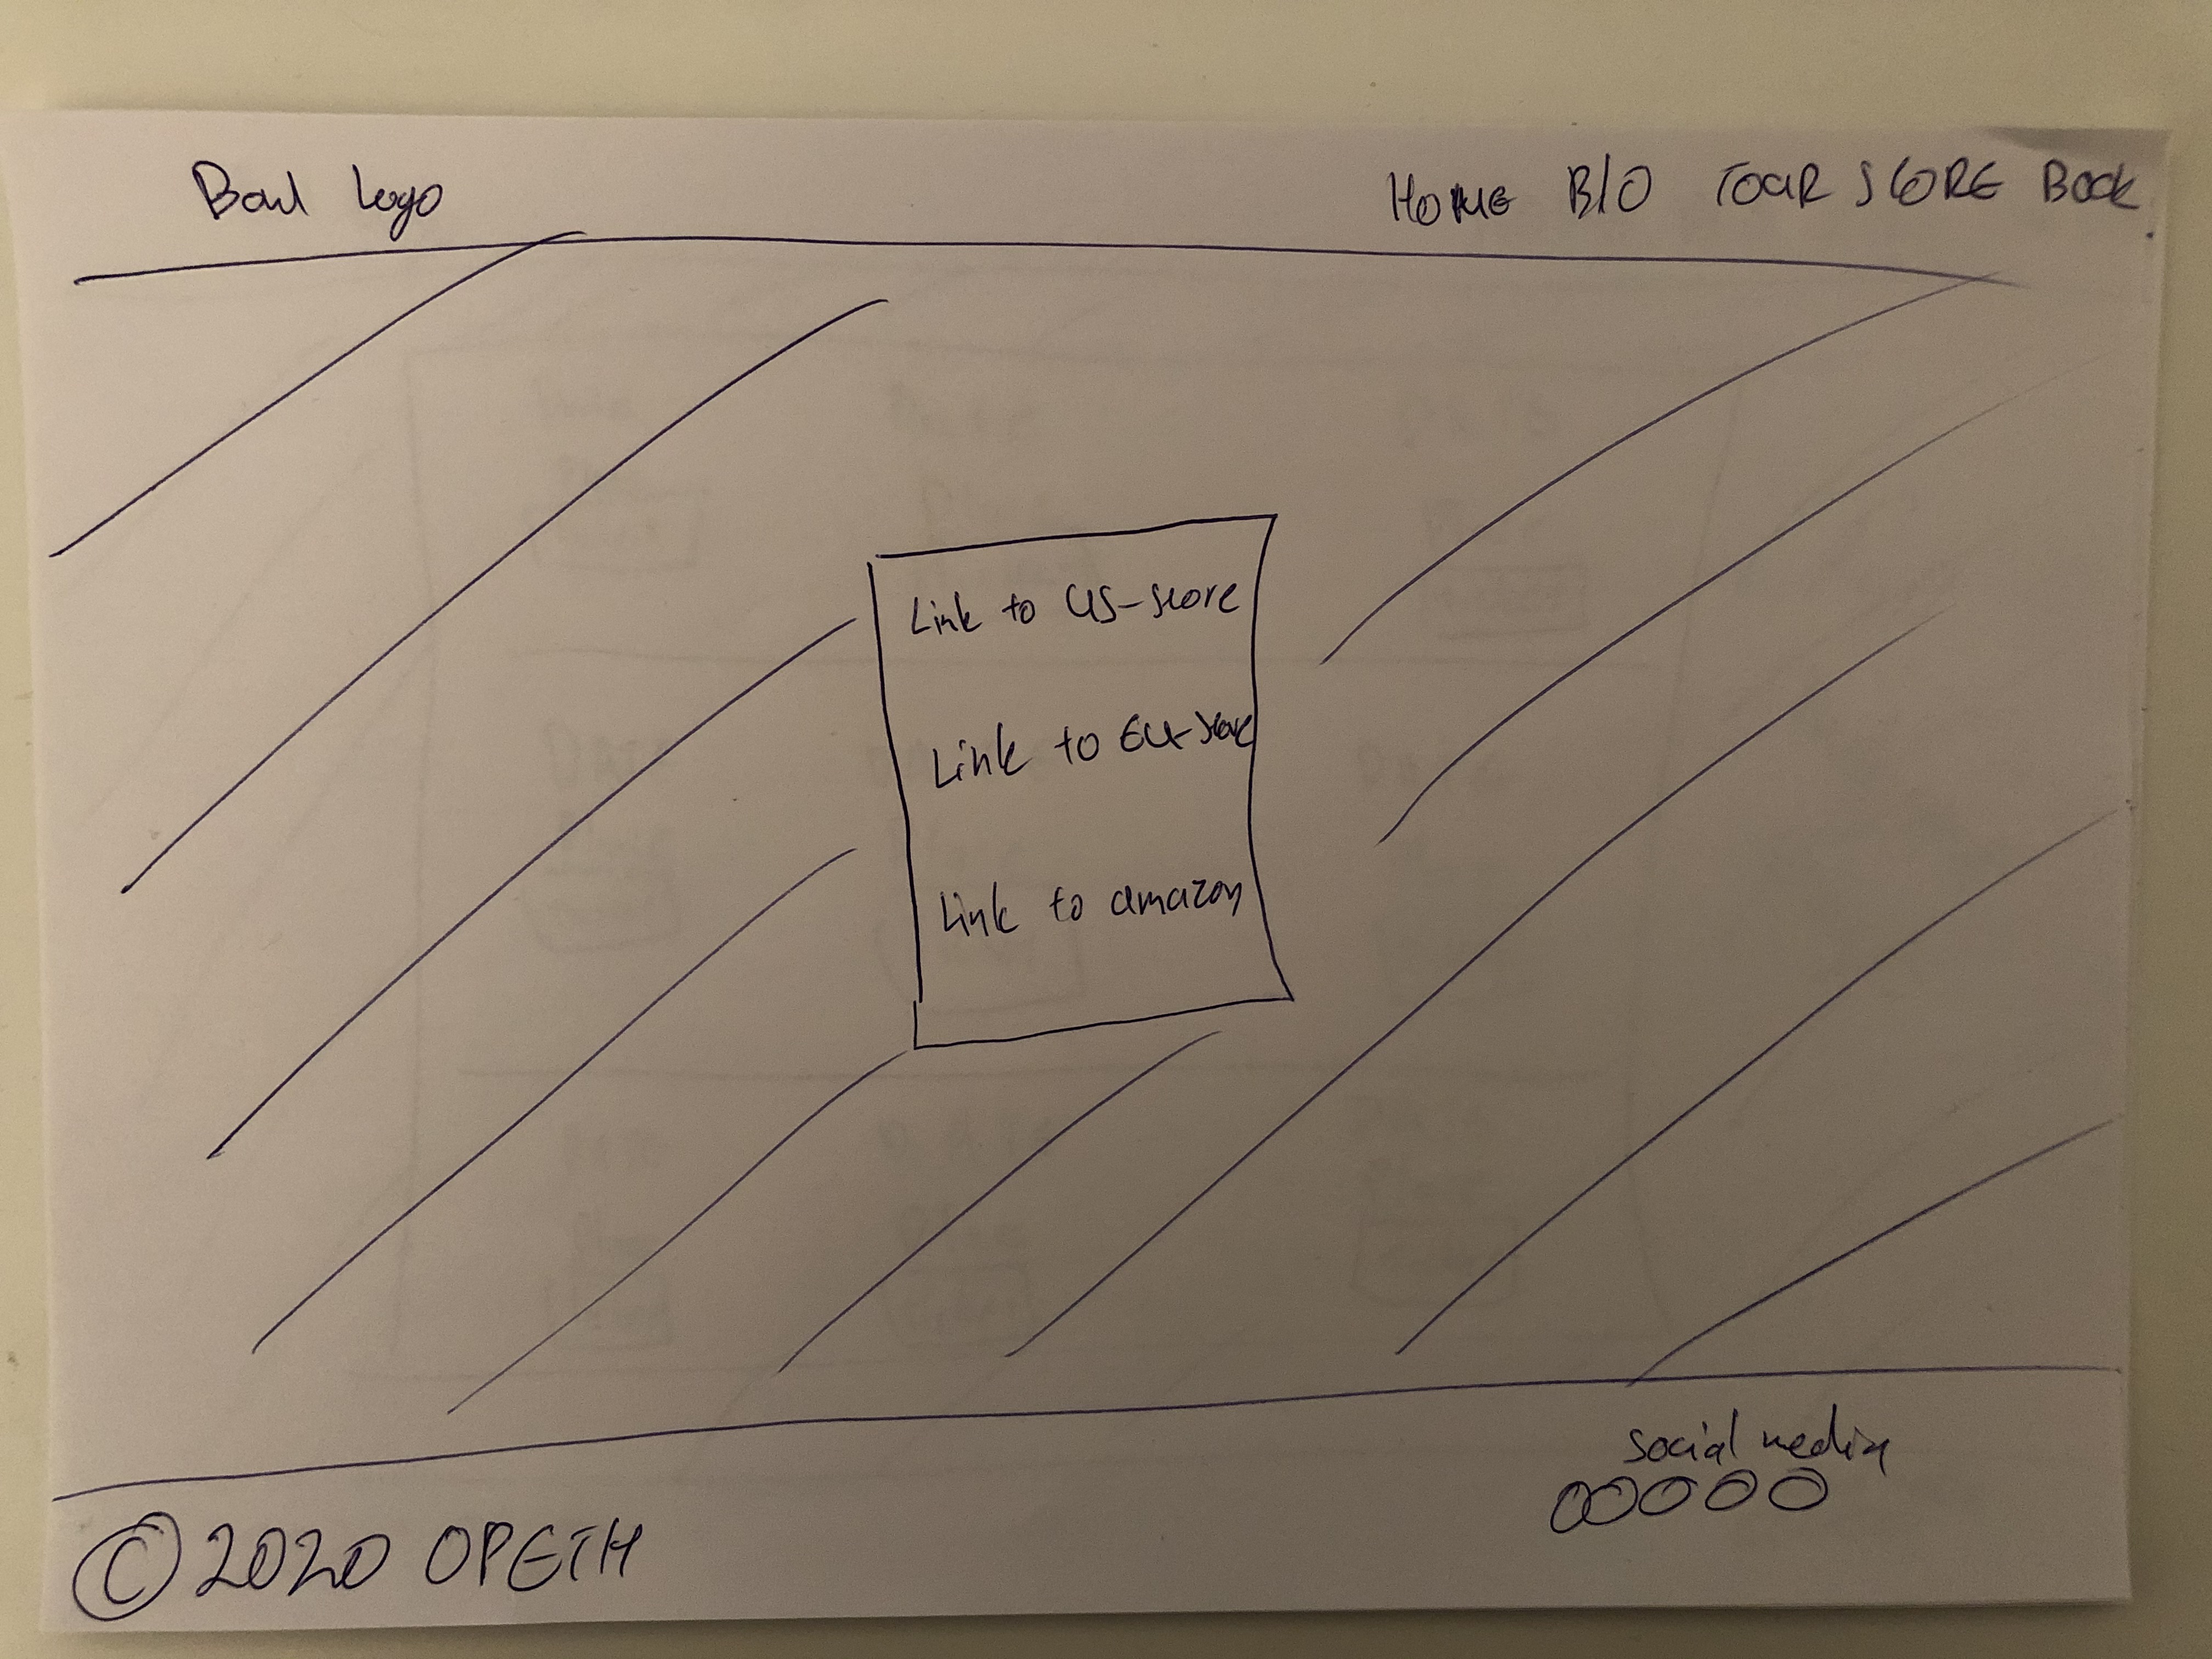 Band Logo HOME BIO TOUR STORE BOOK
Link to US-store
Link to EU-store
Link to amazon
social media
© 2020 OPETH